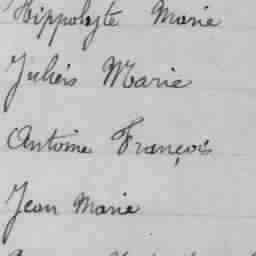 Hippolyte Marie
Juliers Marie
Antoine François
Jean Marie